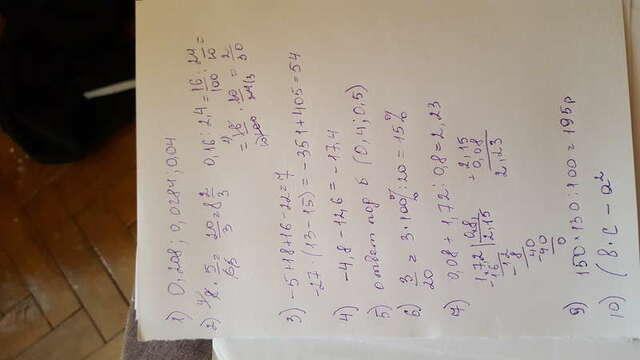 1) 0,208; 0,0284; 0,04
2) 8 · 5/6 = 20/3 = 8 2/3 0,16 : 2,4 = 16/100 : 24/10 =
= 16/100 · 10/24 = 2/30
3) -5+18+16-22=7
-27 · (13-15) = -351+405=54
4) -4,8-12,6=-17,4
5) ответ под б (0,4; 0,5)
6) 3/20 = 3·100% : 20 = 15%
7) 0,08 + 1,72 : 0,8 = 2,23
1,72 | 0,8 + 2,15
-16 2,15 0,08
-12 2,23
8
-40
40
0
9) 150·130:100=195р
10) (8·c - a²